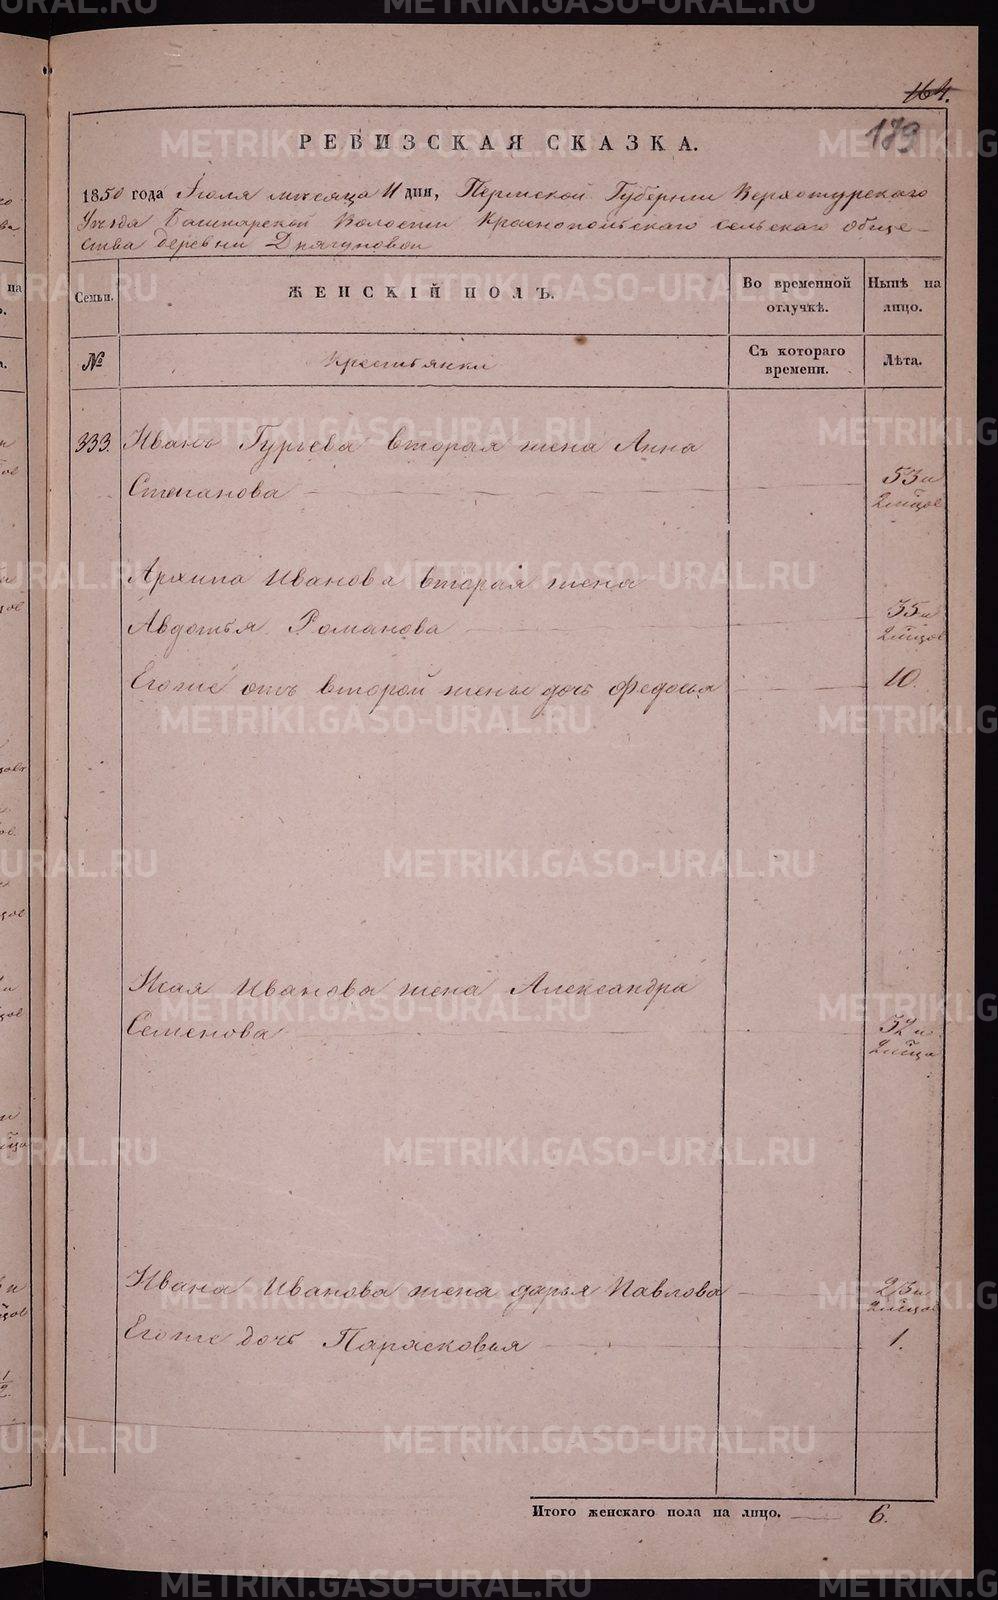 METRIKI.GASO-URAL.RU
164.
179
РЕВИЗСКАЯ СКАЗКА.
1850 года Июля месяца 11 дня, Пермской Губернии Верхотурского
Уезда Башкарской Волости Краснопольского сельского обще-
ства деревни Дрягуновой
Семьи.
ЖЕНСКІЙ ПОЛЪ.
Во временной отлучкѣ.
Нынѣ на лицо.
№
Крестьянки
Съ котораго времени.
Лѣта.
333. Иванъ Гурьева вторая жена Анна
Степанова 53 и 2 мѣсцов
Архипа Иванова вторая жена
Авдотья Романова 35 и 2 мѣсцов
Егоже отъ второй жены дочь Федосья 10.
Иванова жена Александра
Семенова 32 и 2 мѣсца
Ивана Иванова жена дарья Павлова 23 и 2 мѣсцов
Егоже дочь Парасковья 1.
Итого женскаго пола на лицо. 6.